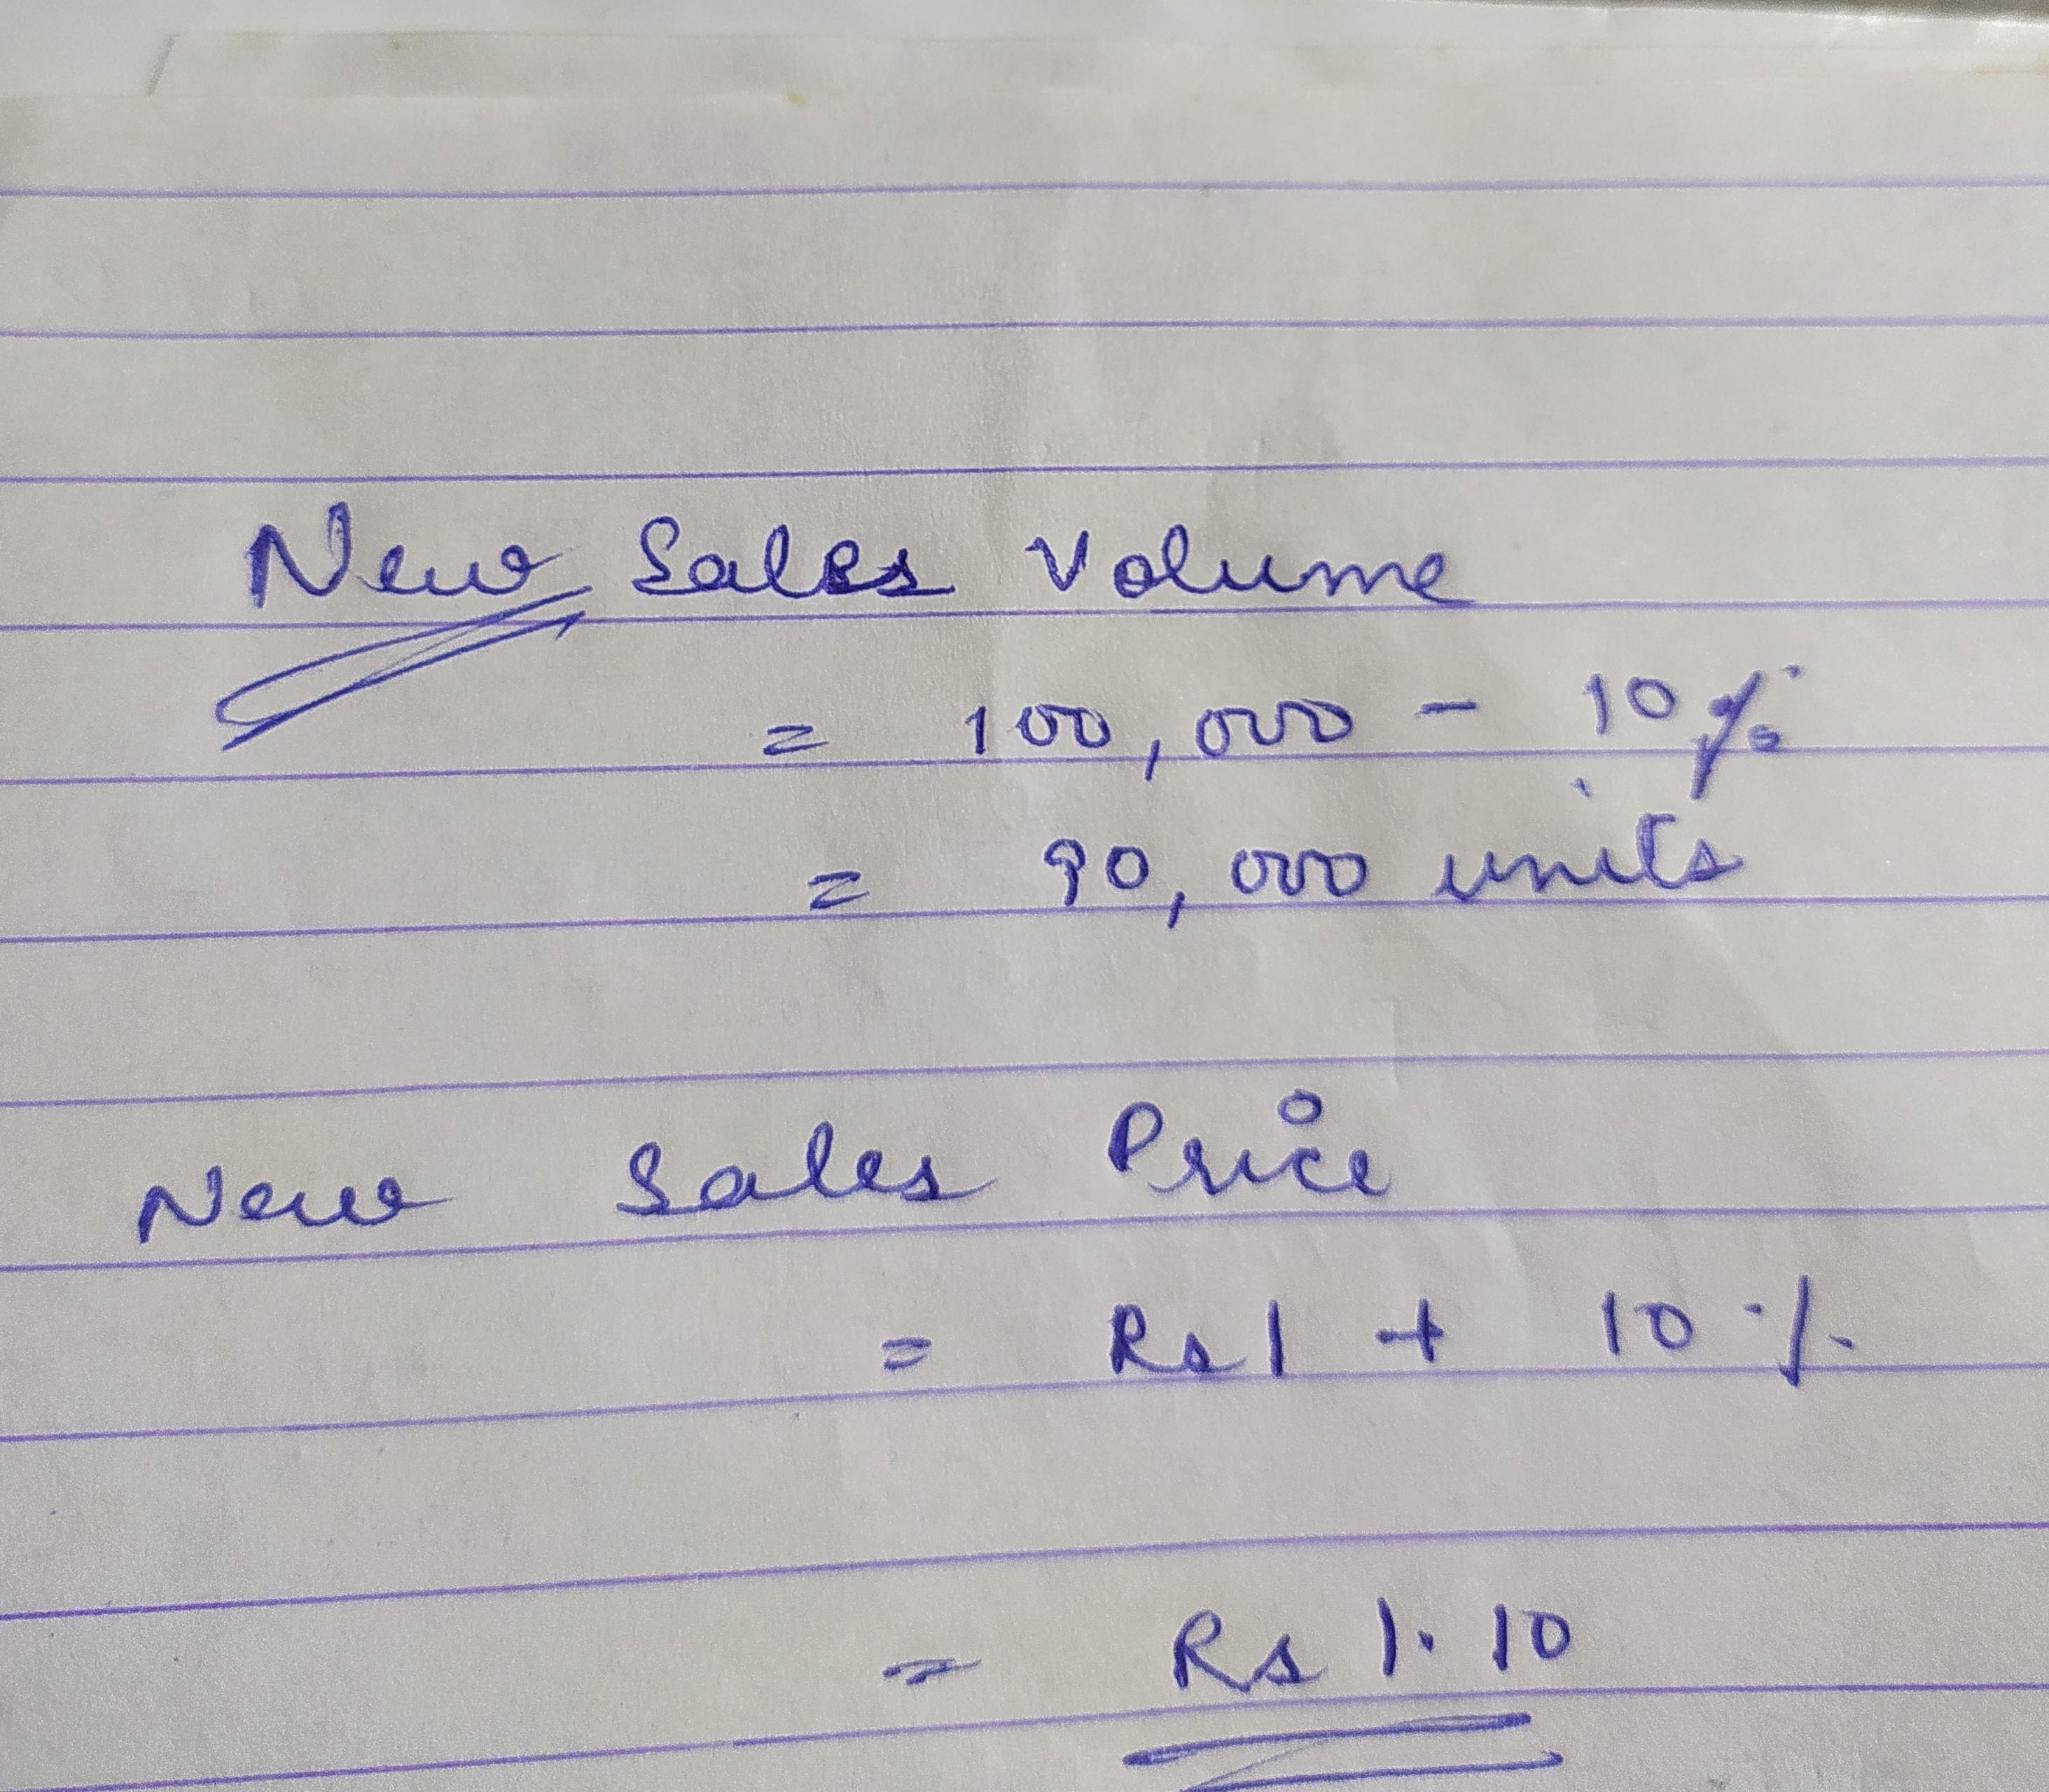 New Sales Volume
= 100,000 - 10%
= 90,000 units
New Sales Price
= Rs 1 + 10%
= Rs 1.10